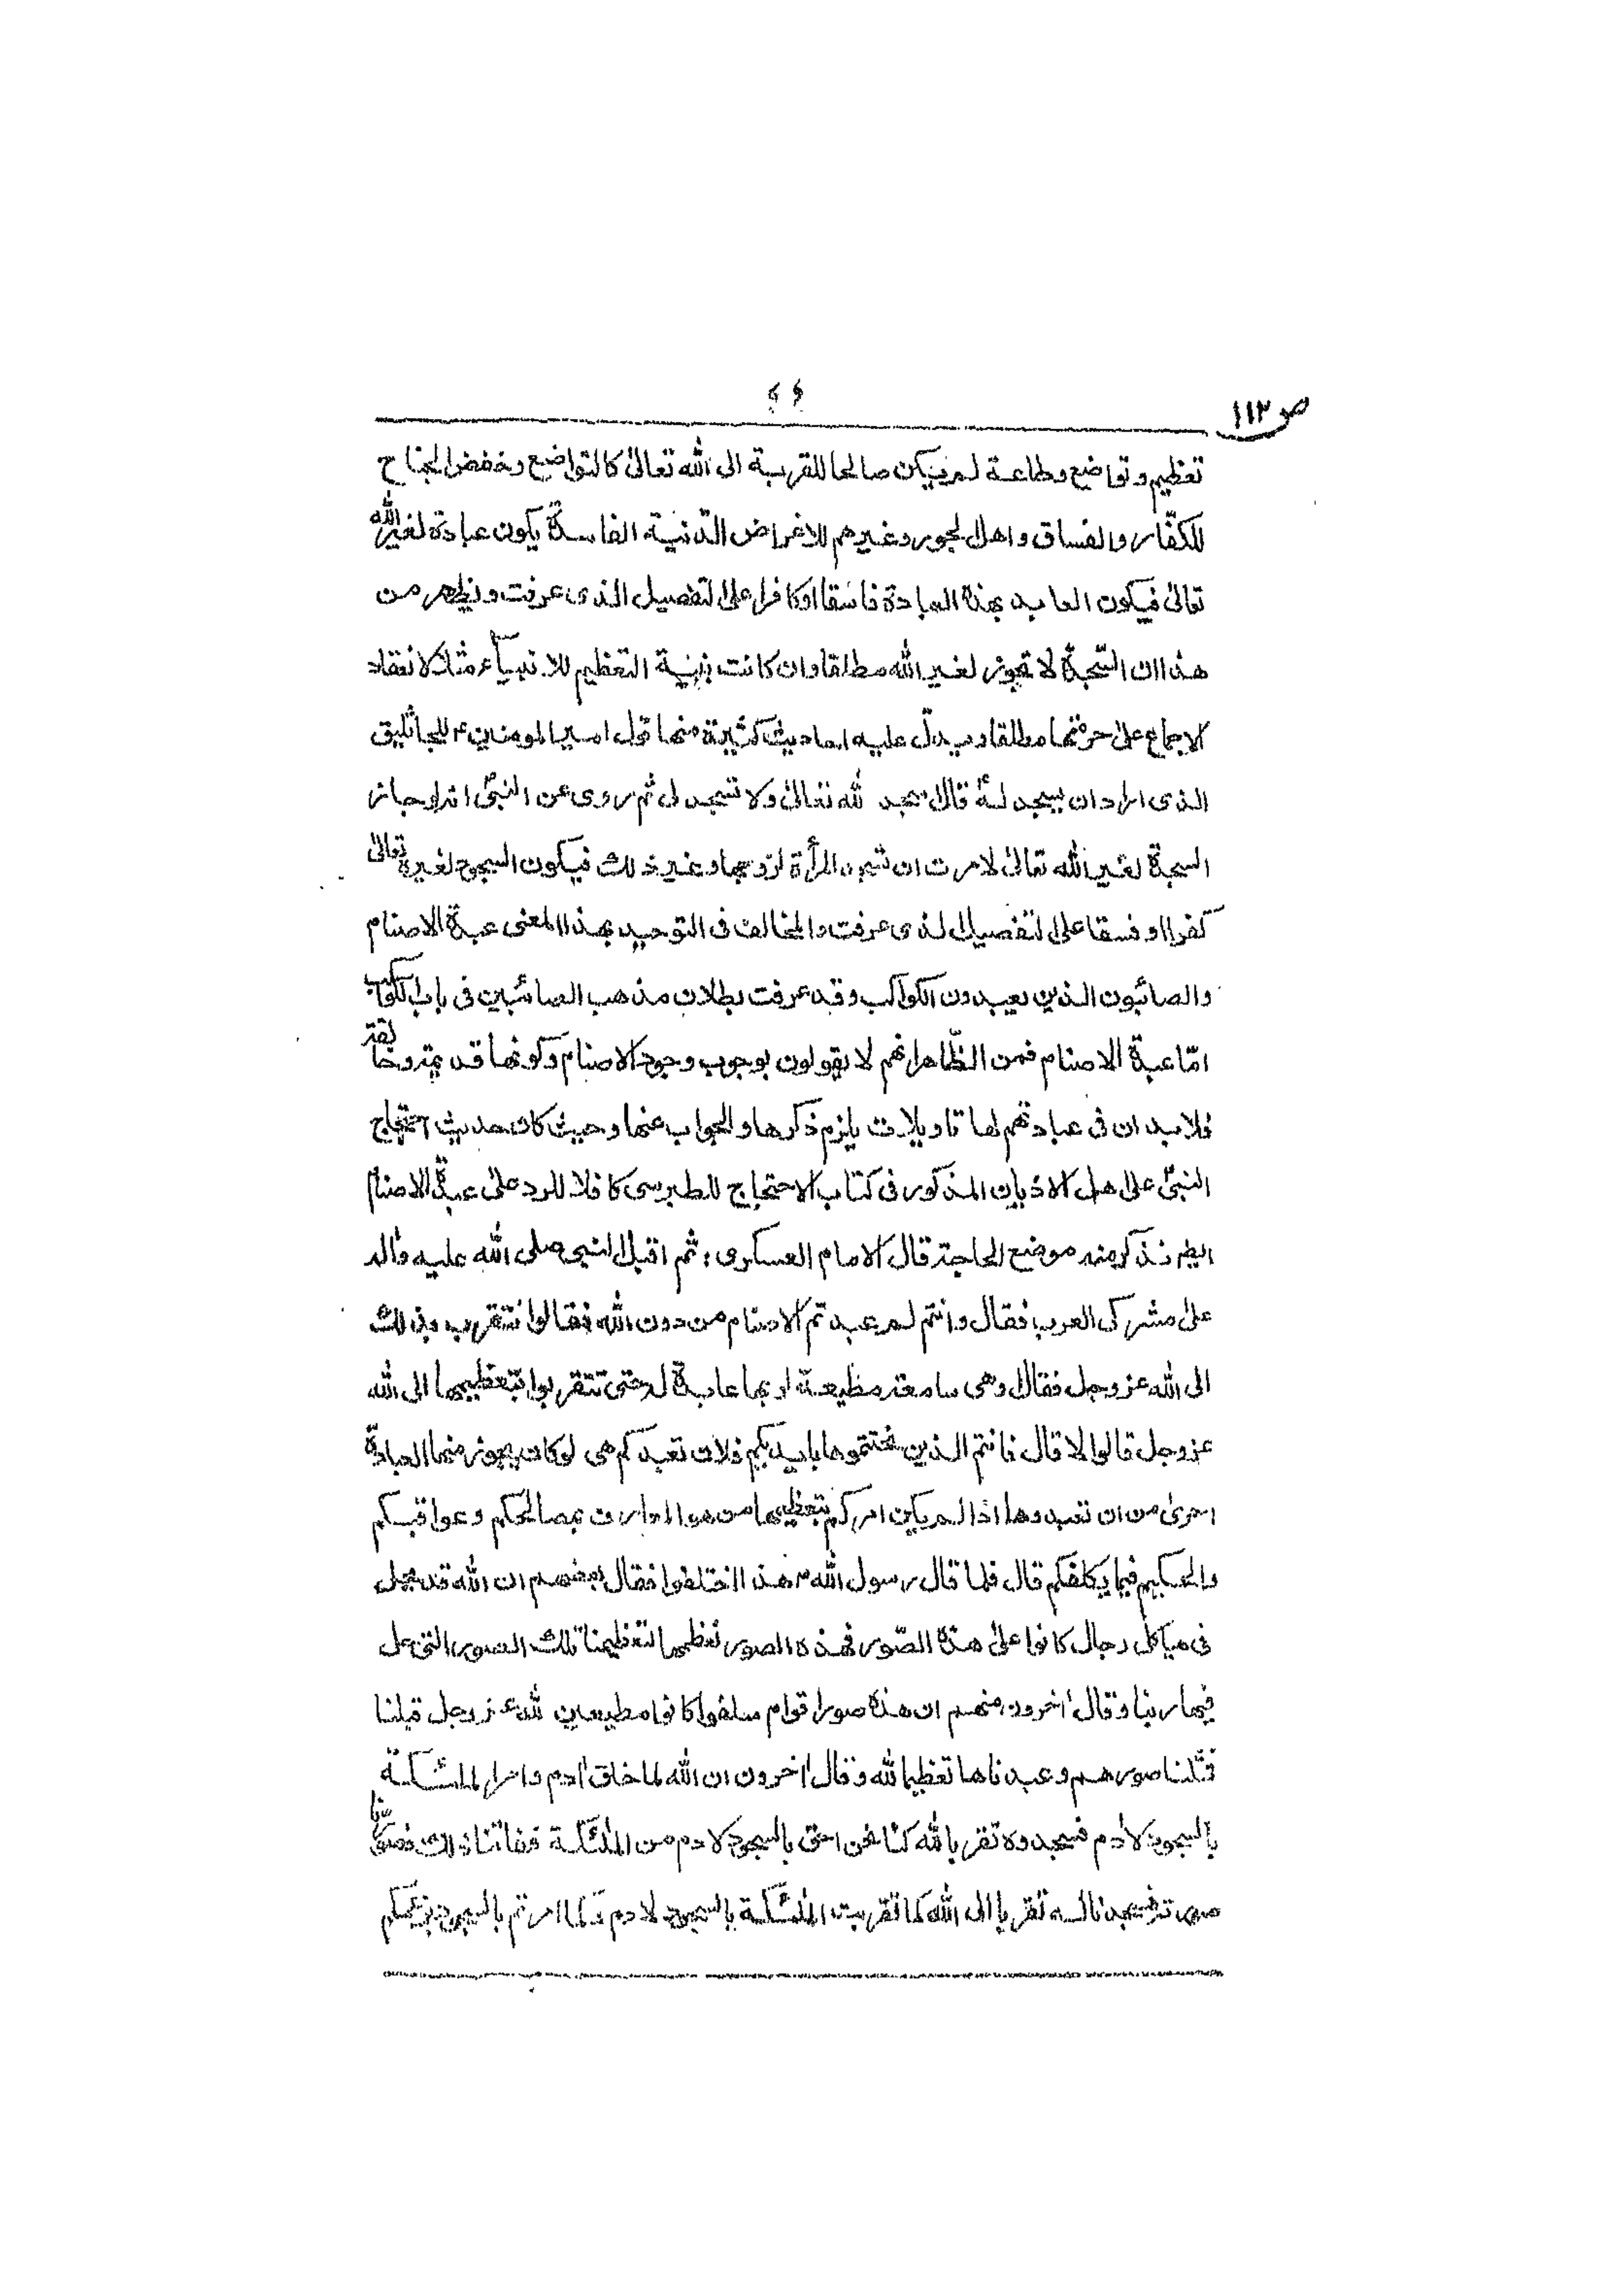 ص ١١٢
تعظيم وتواضع وطاعة لمن يكن صالحا للقربة الى الله تعالىٰ كالتواضع وخفض الجناح
للكفّار والفساق واهل الجور وغيرهم للاغراض الدّنية الفاسدة يكون عبادة لغير الله
تعالىٰ فيكون العابد بهذه العبادة فاسقا اوكافرا علىٰ التفصيل الذى عرفت ويظهر من
هذا ان السّجدة لا تجوز لغير الله مطلقا وان كانت بنية التعظيم للانبيآء مثلا لانعقاد
الاجماع علىٰ حرمتها مطلقا ويدلّ عليه احاديث كثيرة منها قول امير المومنينؑ للجاثليق
الذى اراد ان يسجد لهٗ قال اسجد لله تعالىٰ ولا تسجد لى ثم روى عن النبىؐ انه لو جاز
السجدة لغير الله تعالىٰ لامرت ان تسجد المرأة لزوجها وغير ذلك فيكون السجود لغيره تعالىٰ
كفرا او فسقا علىٰ التفصيل الذى عرفت والمخالف فى التوحيد بهذا المعنى عبدة الاصنام
والصائبون الذين يعبدون الكواكب وقد عرفت بطلان مذهب الصائبين فى باب
امّا عبدة الاصنام فمن الظّاهر انهم لا يقولون بوجوب وجود الاصنام وكونها
فلا بد ان فى عبادتهم لها تاويلات يلزم ذكرها والجواب عنها وحيث كان حديث احتجاج
النبىؐ علىٰ اهل الاديان المذكور فى كتاب الاحتجاج للطبرسى كافلا للرد علىٰ عبدة الاصنام
ايضا نذكر منه موضع الحاجة قال الامام العسكرىؑ ثم اقبل النبى صلى الله عليه واٰله
علىٰ مشركى العرب فقال وانتم لم عبدتم الاصنام من دون الله فقالوا نتقرب بذلك
الى الله عزوجل فقال وهى سامعة مطيعة لربها عابدة له حتى تتقربوا بتعظيمها الى الله
عزوجل قالوا لا قال فانتم الذين نحتتموها بايديكم فلان تعبدكم هى لوكان يجوز منها العبادة
احرى من ان تعبدوها اذا لم يكن امركم بتعظيمها من هو العارف بمصالحكم وعواقبكم
والحكيم فيما يكلفكم قال فلما قال رسول اللهؐ هذا اختلفوا فقال بعضهم ان الله قد حل
فى هياكل رجال كانوا علىٰ هذه الصّور فهذه الصور نعظمها لتعظيمنا تلك الصور التى حل
فيها ربنا وقال اٰخرون منهم ان هذه صور اقوام سلفوا كانوا مطيعين لله عزوجل قبلنا
فمثّلنا صورهم وعبدناها تعظيما لله وقال اٰخرون ان الله لما خلق اٰدم وامر الملٰئكة
بالسجود لاٰدم فسجدوه تقربا لله كنّا نحن احق بالسجود لاٰدم من الملٰئكة ففاتنا ذلك فصوّرنا
صورته فسجدنا لهٗ تقربا الى الله كما تقربت الملٰئكة بالسجود لاٰدم وكما امرتم بالسجود بزعمكم